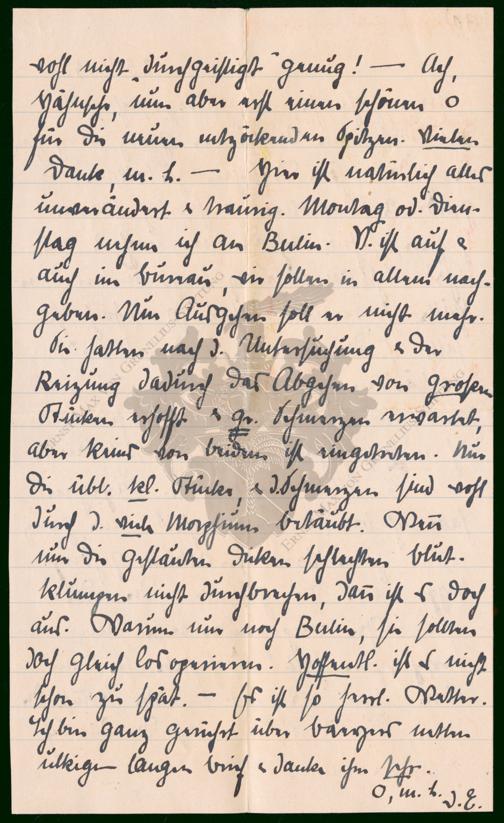 wohl nicht "durchgeistigt" genug! — Ach,
nun aber erst einen schönen O
für die neuen entzückenden Spitzen. Vielen
Dank, m. h. — Hier ist natürlich alles
unverändert & traurig. Montag od. Diens-
tag nehme ich an Berlin. V. ist auf &
auch im Bureau, wir sollen in allem nach-
geben. Nur Ausgehen soll er nicht mehr.
Sie hatten nach d. Untersuchung & der
Reizung dadurch das Abgehen von großen
Stücken erhofft & gr. Schmerzen erwartet,
aber keins von beiden ist eingetreten. Nur
die übl. kl. Stücke, & d. Schmerzen sind wohl
durch d. viele Morphium betäubt. Wenn
nun die gestauten dicken schlechten Blut-
klumpen nicht durchbrechen, dann ist es doch
aus. Warum nur noch Berlin, sie sollten
doch gleich losoperieren. Hoffentl. ist es nicht
schon zu spät. — Es ist so herrl. Wetter.
Ich bin ganz gerührt über netten
ulkigen langen Brief & danke ihm sehr.
O, m. h. D. E.